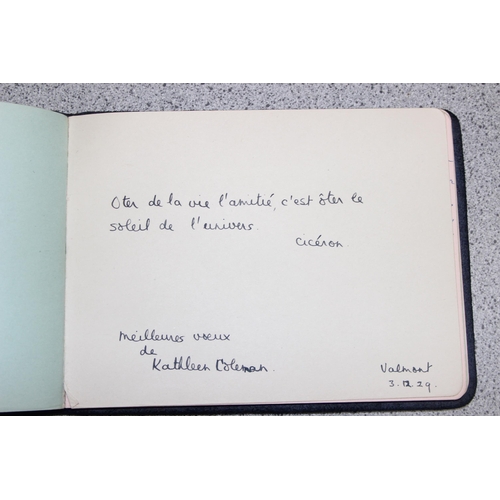 Oter de la vie l'amitié, c'est ôter le
soleil de l'univers.
cicéron.
meilleures vœux
de
Kathleen Coleman.
Valmont
3.12.29.